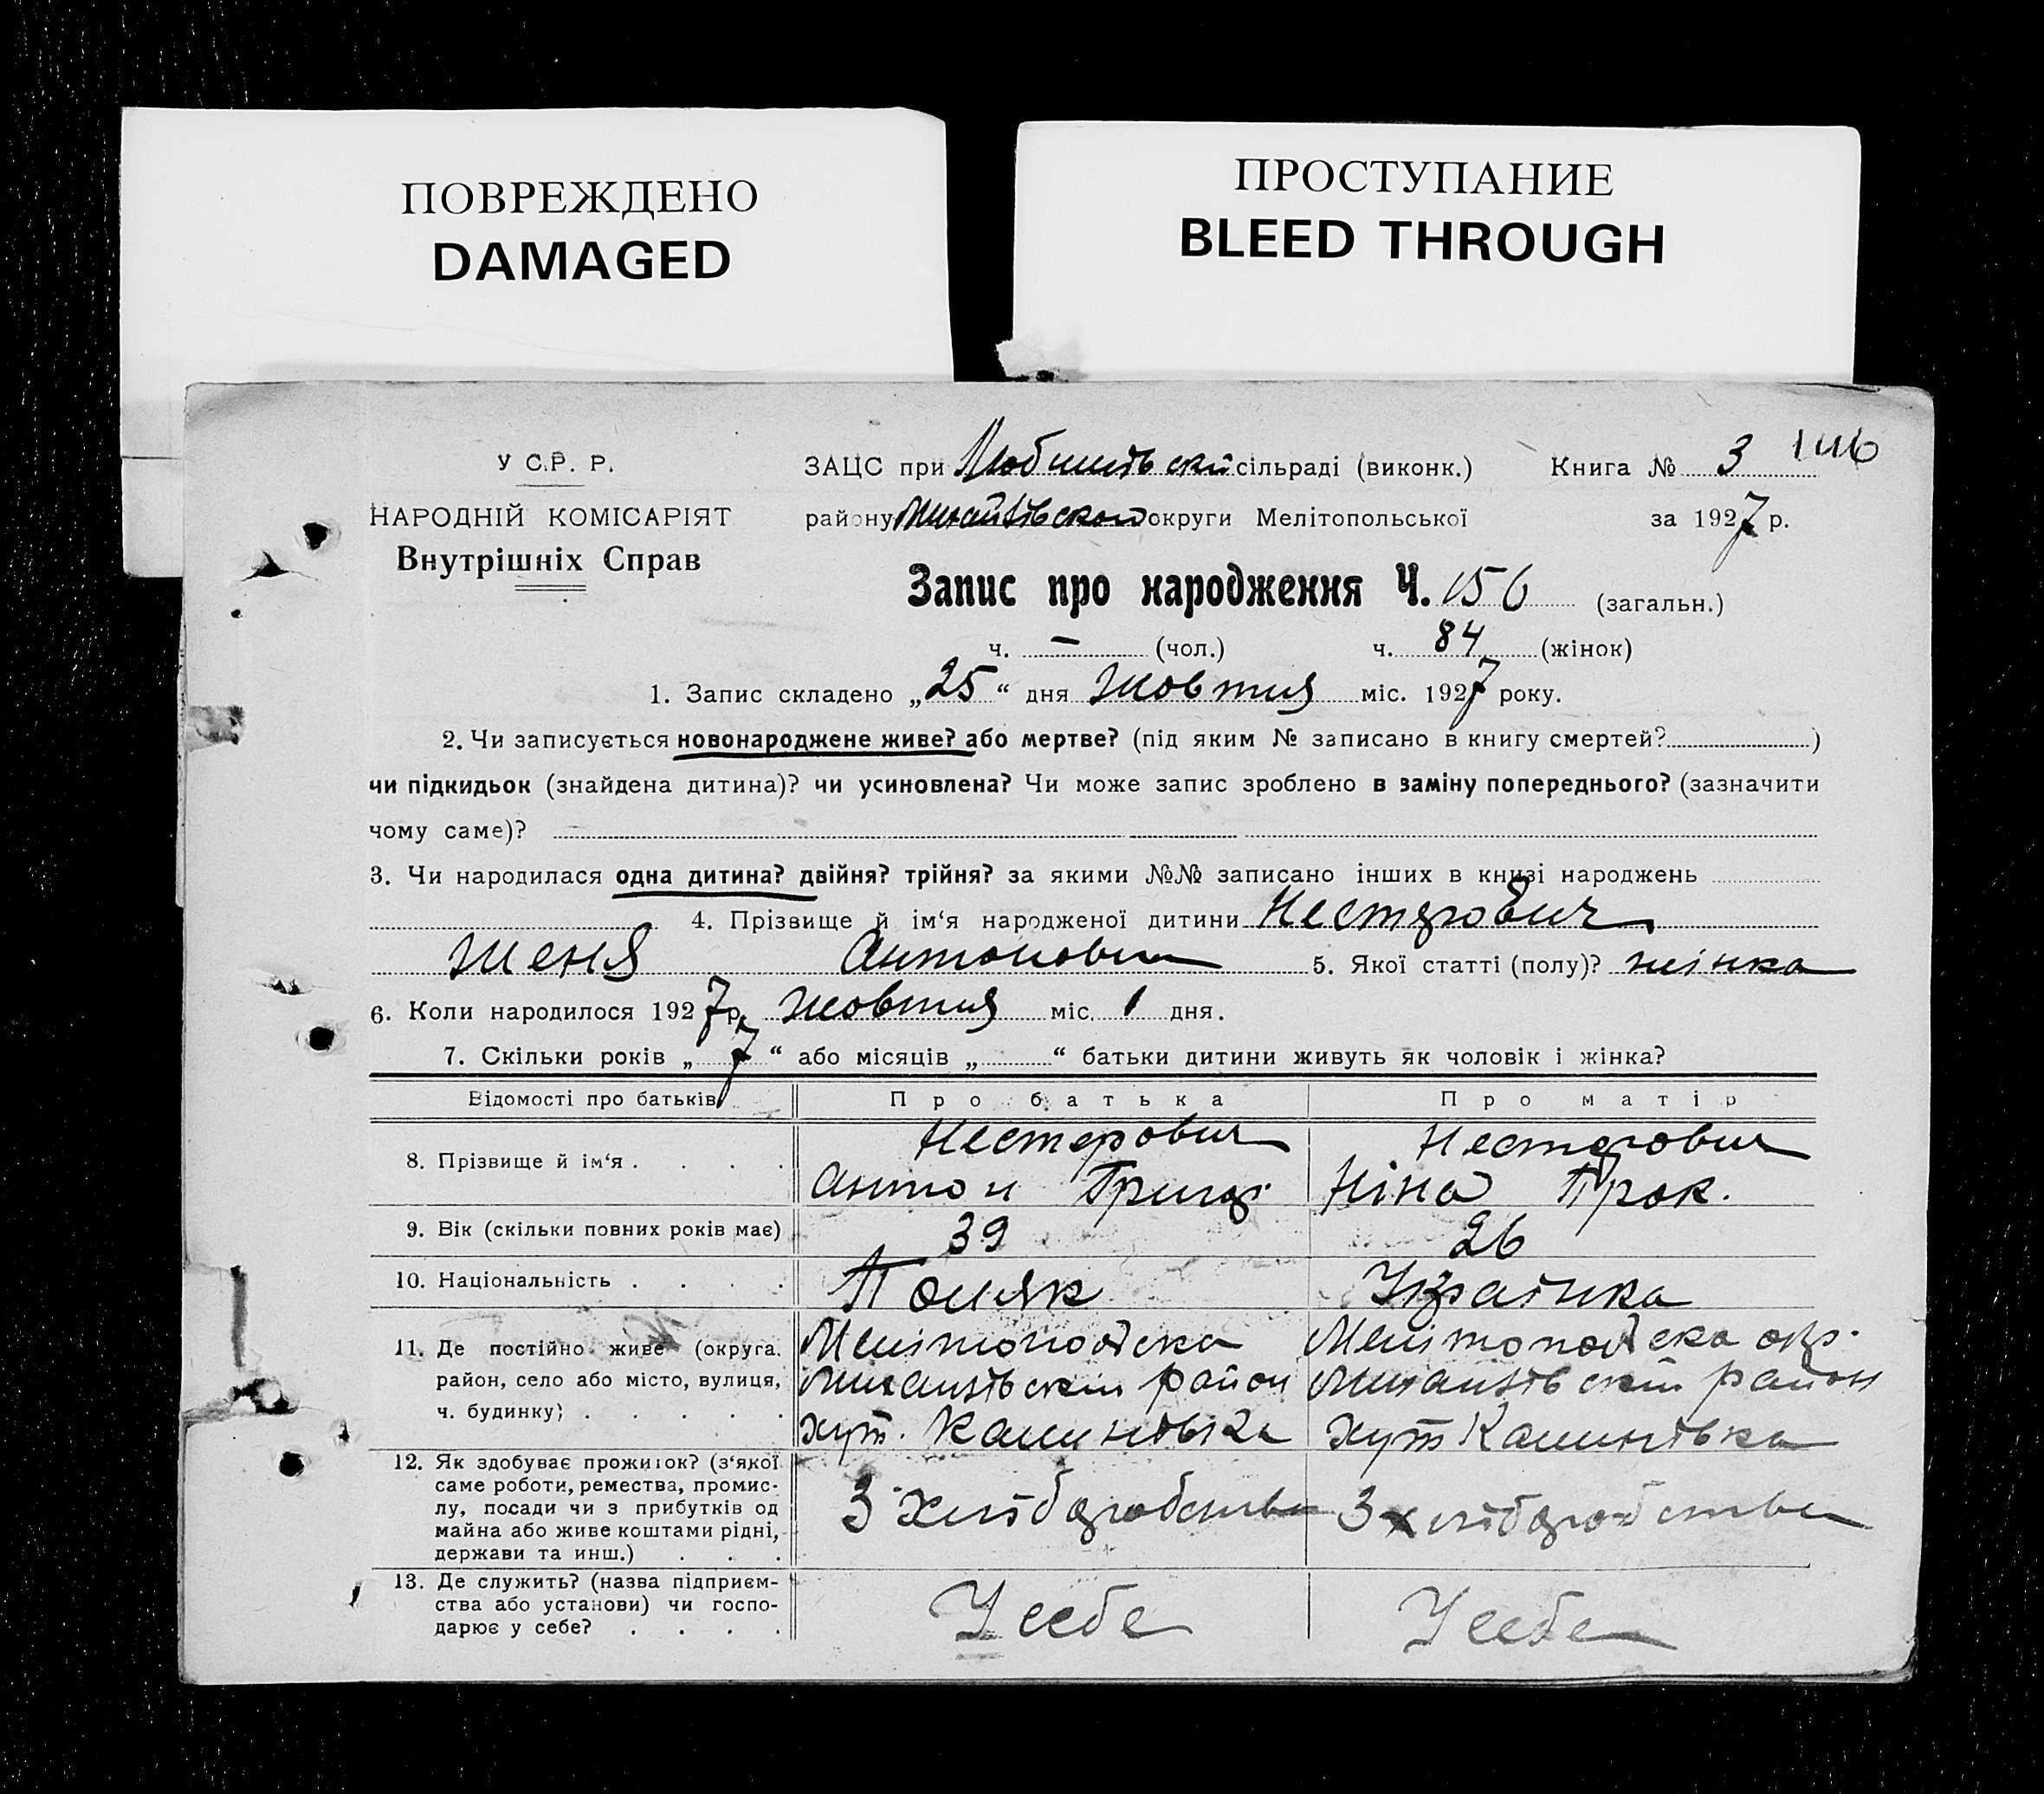 ПОВРЕЖДЕНО
DAMAGED
ПРОСТУПАНИЕ
BLEED THROUGH
У С.Р. Р.
НАРОДНІЙ КОМІСАРІЯТ
Внутрішніх Справ
ЗАЦС при сільраді (виконк.) Книга № 3 146
району округи Мелітопольської за 1927 р.
Запис про народження Ч. 156 (загальн.)
ч. — (чол.) ч. 84 (жінок)
1. Запис складено „25“ дня Жовтня міс. 1927 року.
2. Чи записується новонароджене живе? або мертве? (під яким № записано в книгу смертей? )
чи підкидьок (знайдена дитина)? чи усиновлена? Чи може запис зроблено в заміну попереднього? (зазначити
чому саме)?
3. Чи народилася одна дитина? двійня? трійня? за якими №№ записано інших в книзі народжень
4. Прізвище й ім‘я народженої дитини Нестерович
Женя Антоновна 5. Якої статті (полу)? жінка
6. Коли народилося 1927 р. Жовтня міс. 1 дня.
7. Скільки років „ 7 “ або місяців „ “ батьки дитини живуть як чоловік і жінка?
Відомості про батьків Про батька Про матір
8. Прізвище й ім‘я . . . . Нестерович Нестерович
Антон Григ. Ніна Прок.
9. Вік (скільки повних років має) 39 26
10. Національність . . . . Поляк Українка
11. Де постійно живе (округа, Мелітопольска Мелітопольска окр.
район, село або місто, вулиця, Михайлівский район Михайлівский район
ч. будинку) . . . . . хут. Калинівка хут Калинівка
12. Як здобуває прожиток? (з‘якої
саме роботи, ремества, промис-
лу, посади чи з прибутків од З хліборобства З хліборобства
майна або живе коштами рідні,
держави та инш.) . . .
13. Де служить? (назва підприєм-
ства або установи) чи госпо- У себе У себе
дарює у себе? . . . .